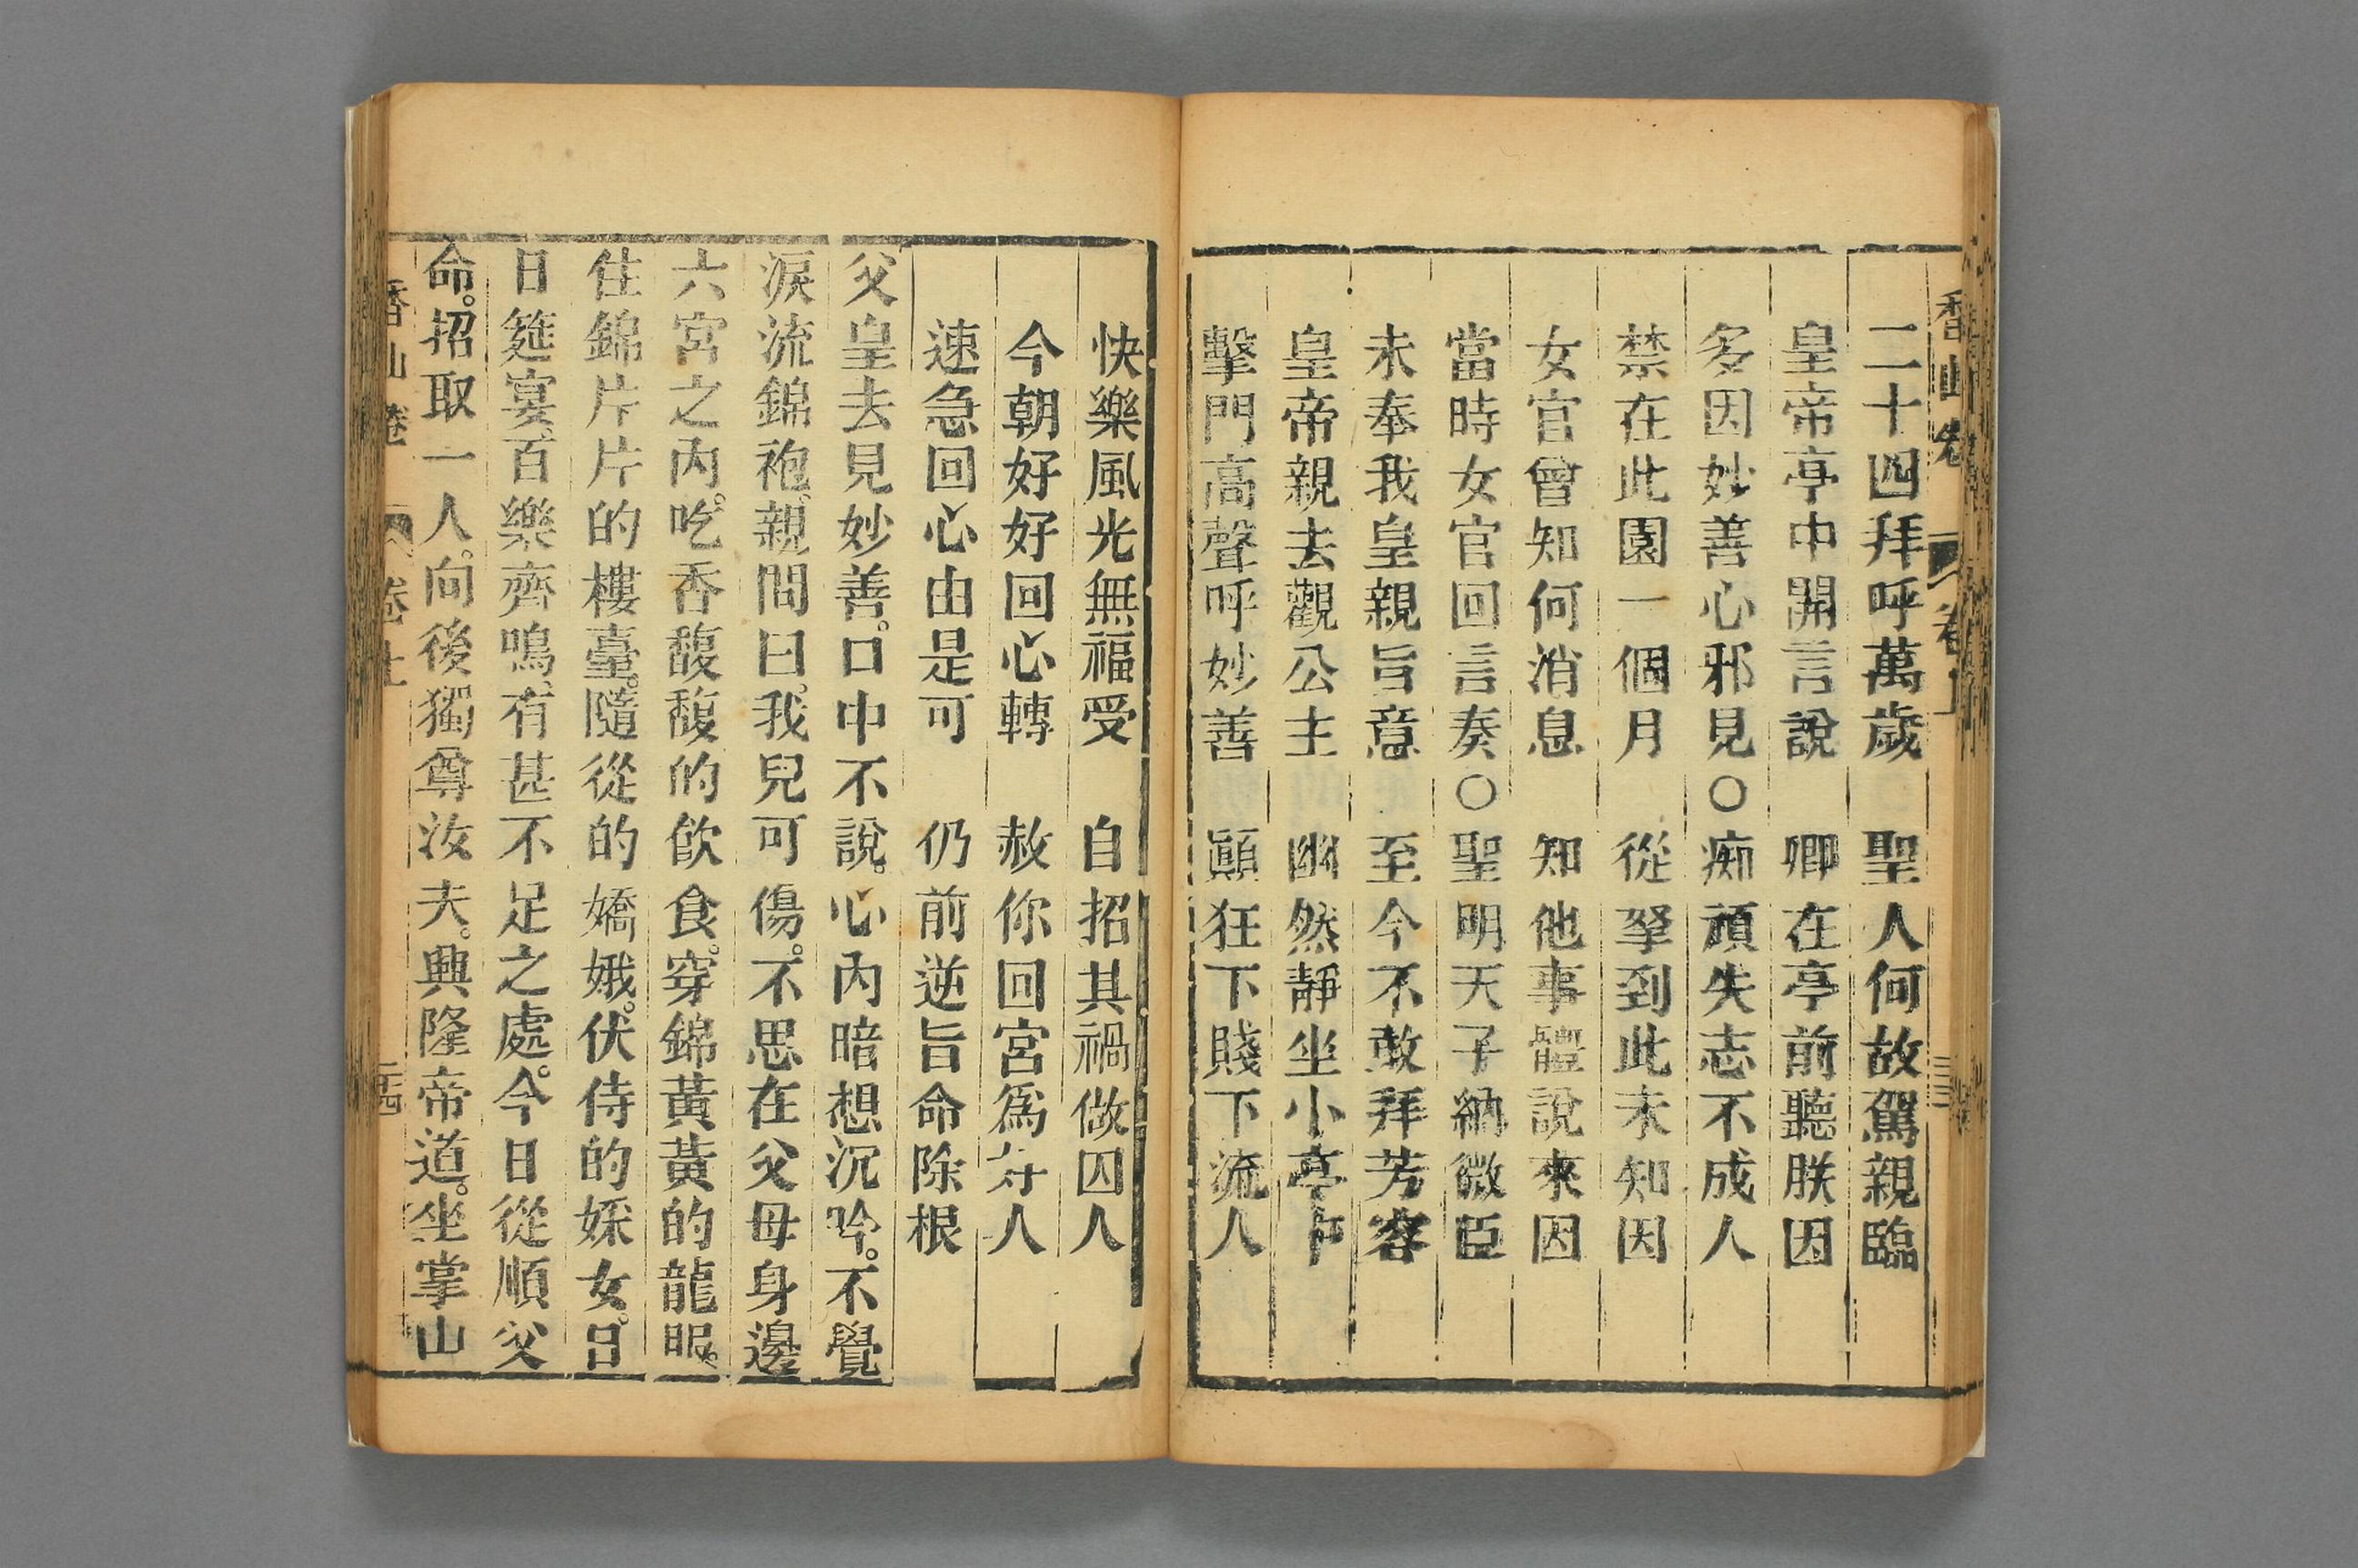 香山卷 卷上
二十四拜呼萬歲 聖人何故駕親臨
皇帝亭中開言說 卿在亭前聽朕因
多因妙善心邪見○痴頑失志不成人
禁在此園一個月 從拏到此未知因
女官曾知何消息 知他事體說來因
當時女官回言奏○聖明天子納微臣
未奉我皇親旨意 至今不敢拜芳容
皇帝親去觀公主 幽然靜坐小亭
擊門高聲呼妙善 顚狂下賤下流人
快樂風光無福受 自招其禍做囚人
今朝好好回心轉 赦你回宮爲好人
速急回心由是可 仍前逆旨命除根
父皇去見妙善。口中不說。心內暗想沉吟。不覺
淚流錦袍。親問曰。我兒可傷。不思在父母身邊
六宮之內。吃香馥馥的飮食。穿錦黃黃的龍服。
住錦片片的樓臺。隨從的嬌娥。伏侍的婇女。日
日筵宴。百樂齊鳴。有甚不足之處。今日從順父
命。招取一人。向後獨尊汝夫。興隆帝道。坐掌山
香山卷 卷上 二十四